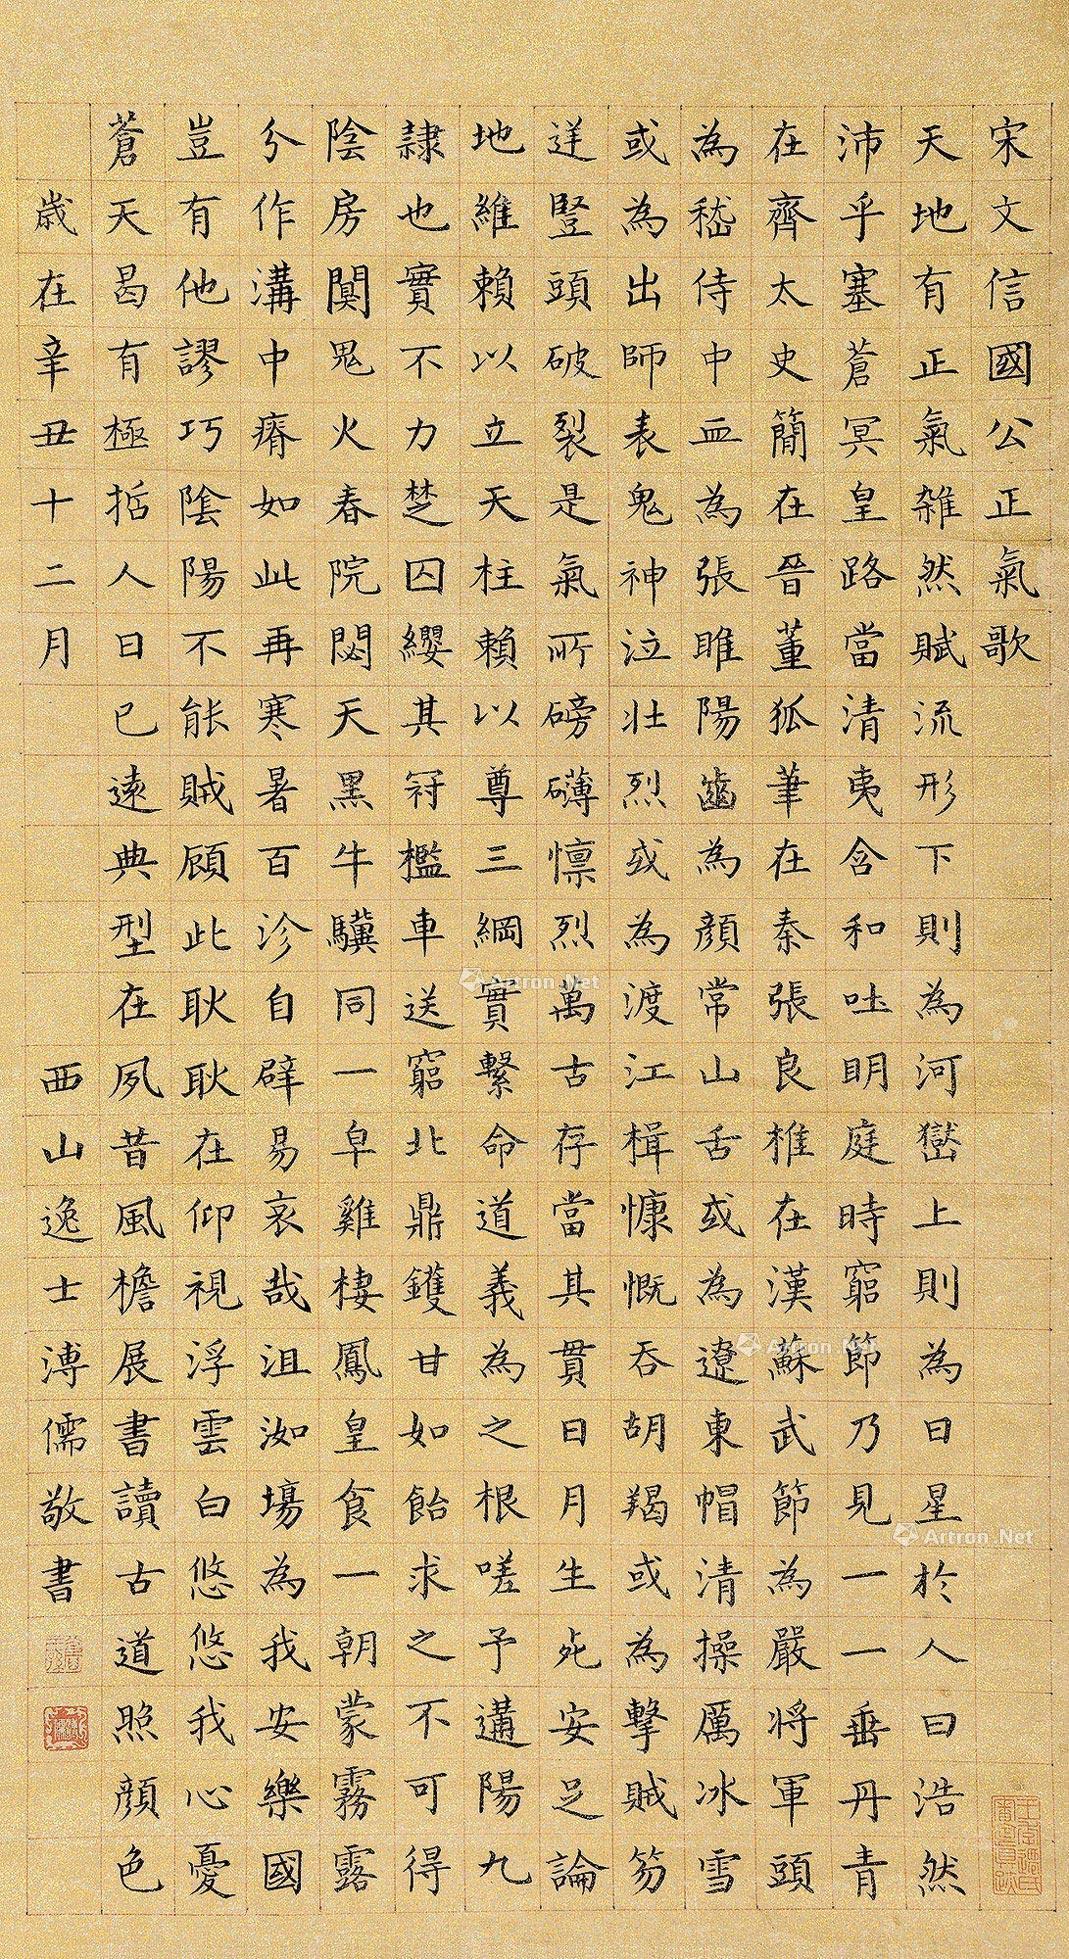 宋文信國公正氣歌
天地有正氣雜然賦流形下則為河嶽上則為日星於人曰浩然
沛乎塞蒼冥皇路當清夷含和吐明庭時窮節乃見一一垂丹青
在齊太史簡在晉董狐筆在秦張良椎在漢蘇武節為嚴將軍頭
為嵇侍中血為張睢陽齒為顏常山舌或為遼東帽清操厲冰雪
或為出師表鬼神泣壯烈或為渡江楫慷慨吞胡羯或為擊賊笏
逆豎頭破裂是氣所磅礴懍烈萬古存當其貫日月生死安足論
地維賴以立天柱賴以尊三綱實繫命道義為之根嗟予遘陽九
隷也實不力楚囚纓其冠檻車送窮北鼎鑊甘如飴求之不可得
陰房闃鬼火春院閟天黑牛驥同一皁雞棲鳳皇食一朝蒙霧露
分作溝中瘠如此再寒暑百沴自辟易哀哉沮洳場為我安樂國
豈有他謬巧陰陽不能賊顧此耿耿在仰視浮雲白悠悠我心憂
蒼天曷有極哲人日已遠典型在夙昔風檐展書讀古道照顏色
歲在辛丑十二月 西山逸士溥儒敬書
Artron.Net
Artron.Net
Artron.Net